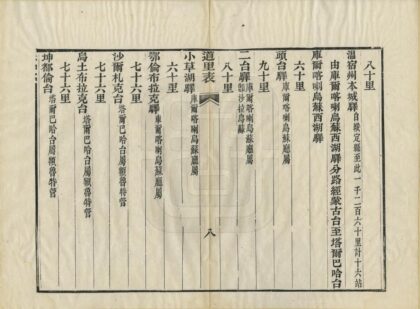 八十里
溫宿州本城驛自綏定縣至此一千二百六十里計十六站
由庫爾喀喇烏蘇西湖驛分路經蒙古台至塔爾巴哈台
庫爾喀喇烏蘇西湖驛
六十里
頭台驛庫爾喀喇烏蘇廳屬
九十里
二台驛即沙拉烏蘇庫爾喀喇烏蘇廳屬
八十里
道里表
八
小草湖驛庫爾喀喇烏蘇廳屬
六十里
鄂倫布拉克驛庫爾喀喇烏蘇廳屬
六十里
沙爾札克台塔爾巴哈台屬額魯特營
七十六里
烏土布拉克台塔爾巴哈台屬額魯特營
七十六里
坤都倫台塔爾巴哈台屬額魯特營